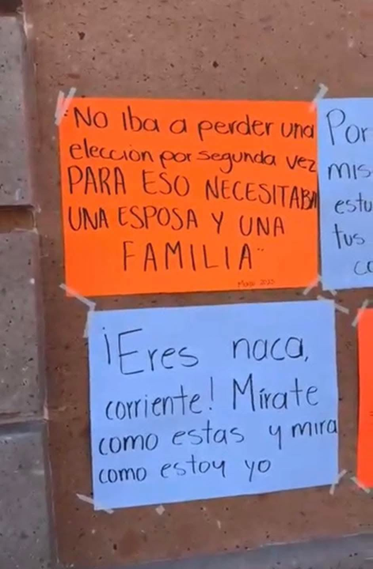 "No iba a perder una
elección por segunda vez
PARA ESO NECESITABA
UNA ESPOSA Y UNA
FAMILIA"
Por
mis
estu
tus
¡Eres naca,
corriente! Mírate
como estas y mira
como estoy yo